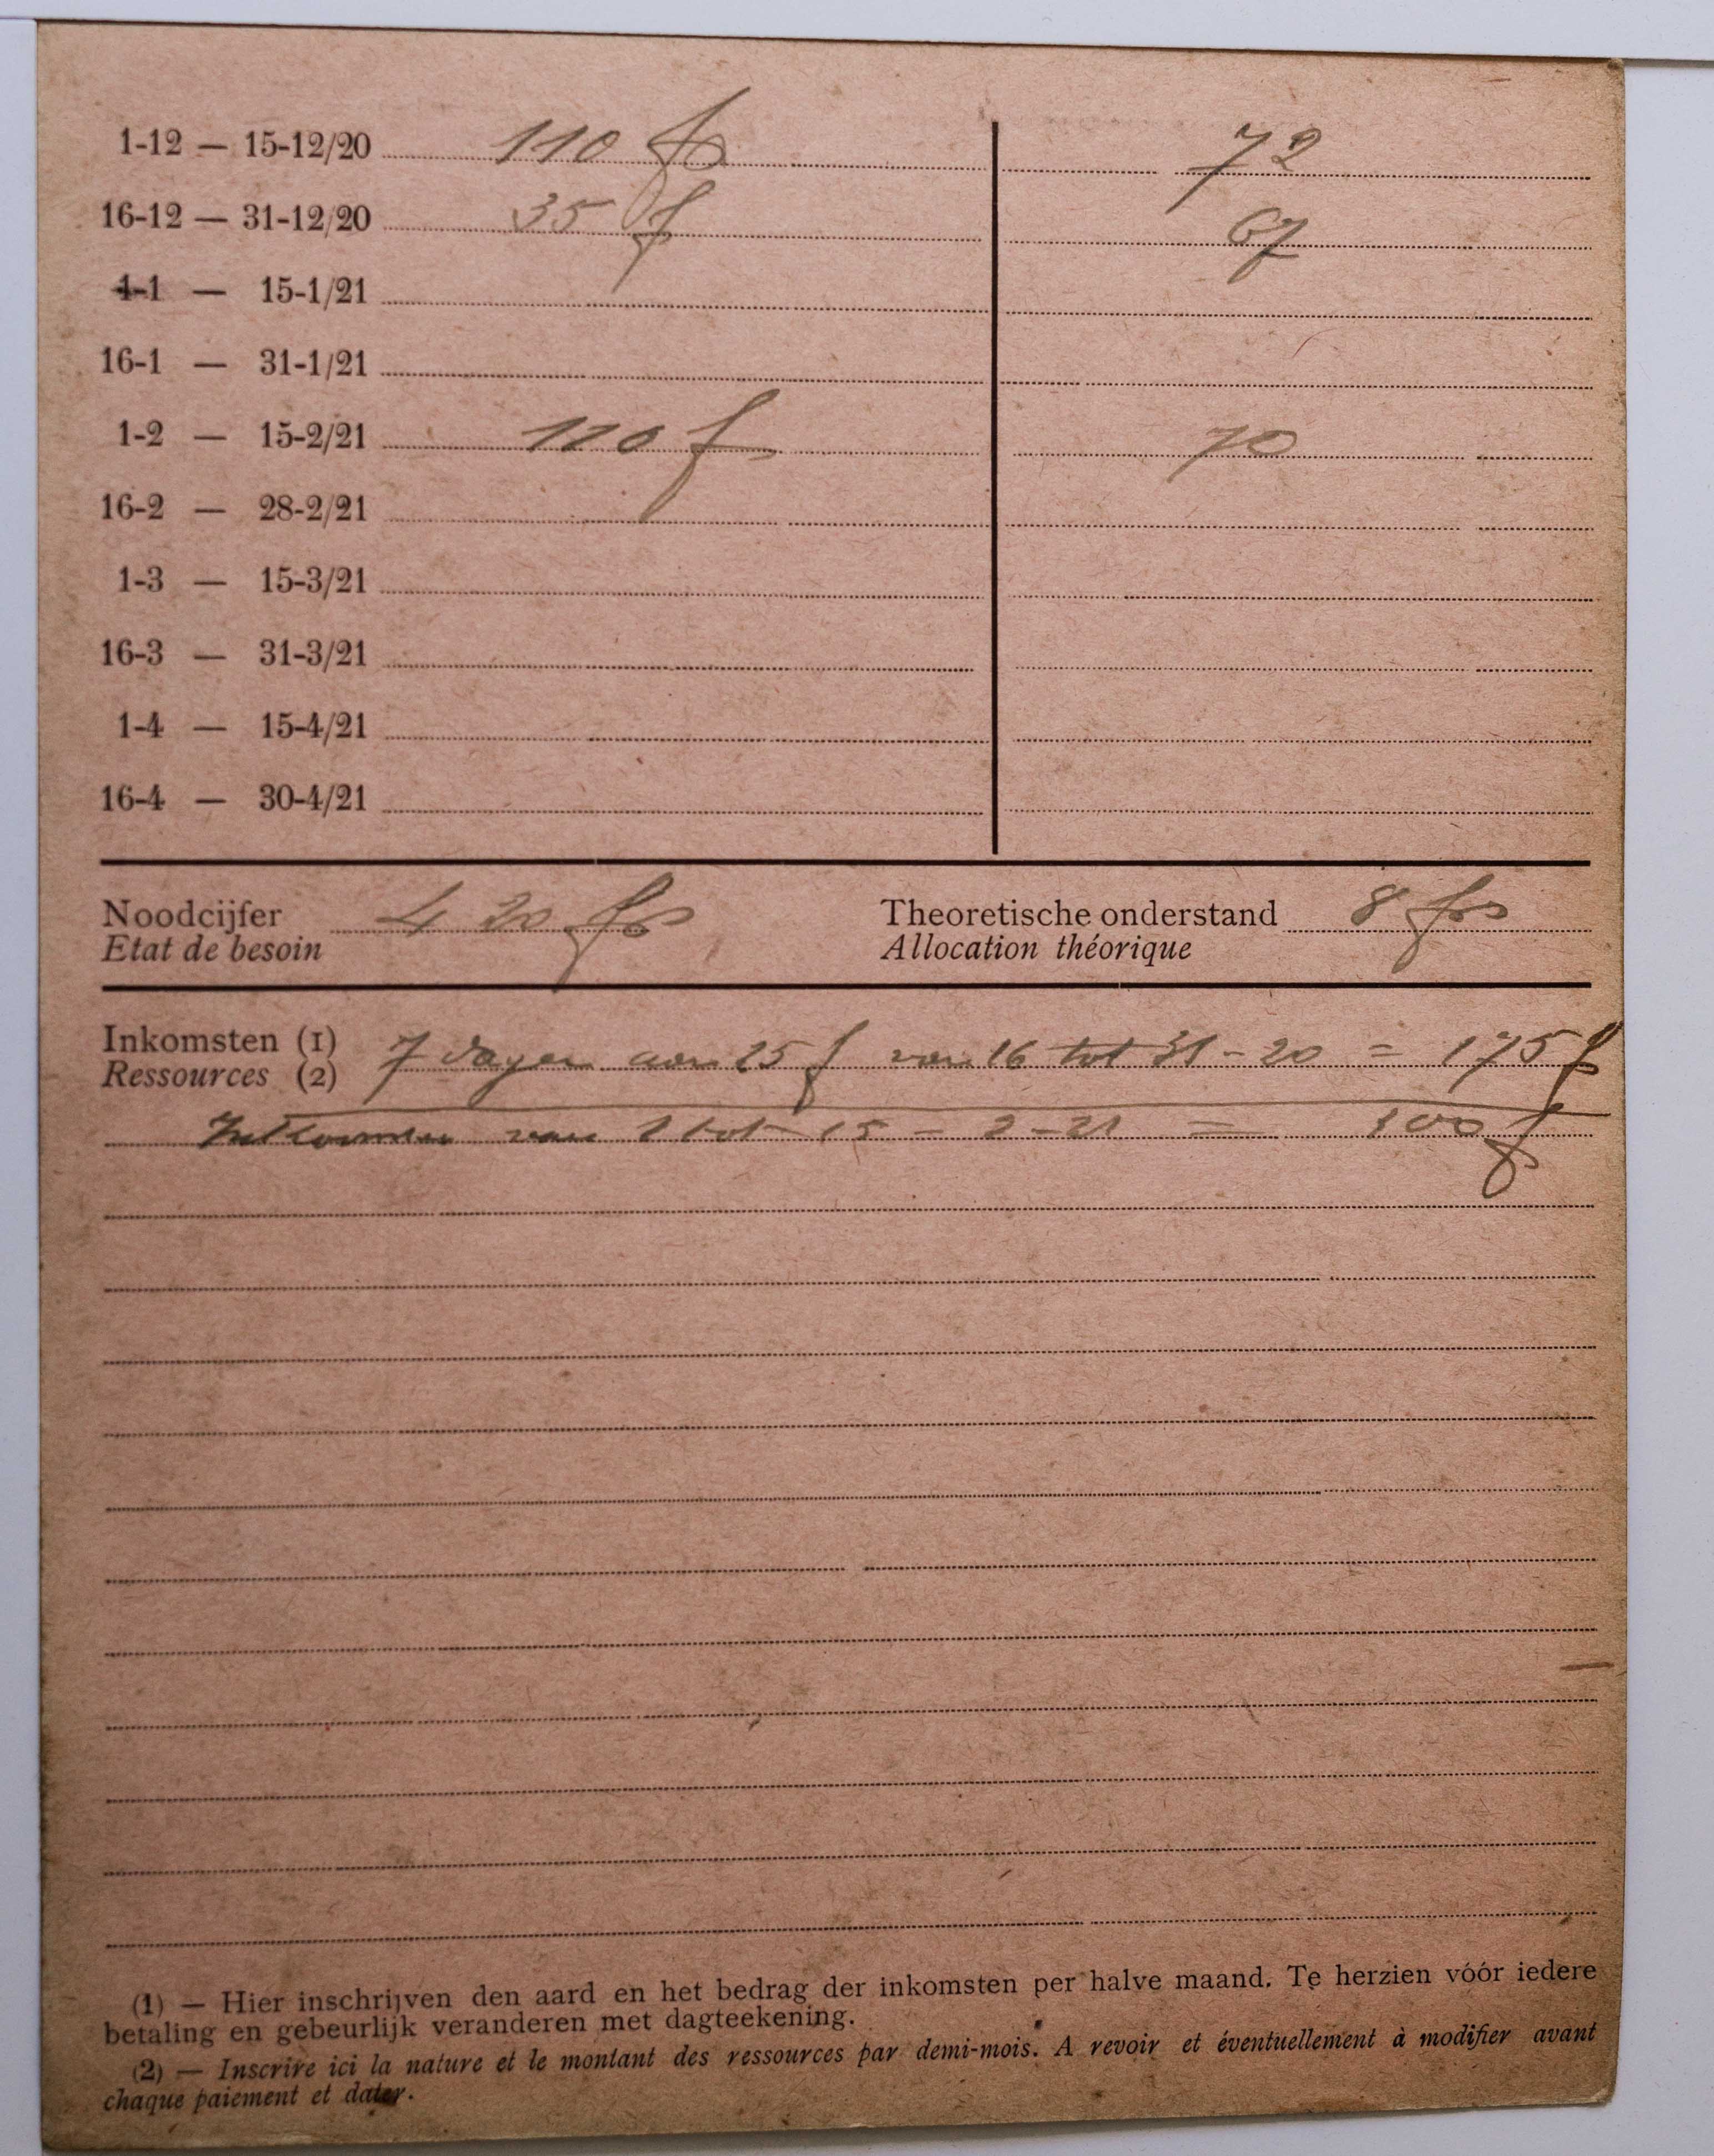 1-12 — 15-12/20 110 fs 72
16-12 — 31-12/20 35 f 67
1-1 — 15-1/21
16-1 — 31-1/21
1-2 — 15-2/21 120 f 70
16-2 — 28-2/21
1-3 — 15-3/21
16-3 — 31-3/21
1-4 — 15-4/21
16-4 — 30-4/21
Noodcijfer 420 fs Theoretische onderstand 8 frs
Etat de besoin Allocation théorique
Inkomsten (1) 7 dagen aan 25 f van 16 tot 31 - 20 = 175 f
Ressources (2)
Inkomen van 1 tot 15 - 2 - 21 = 100 f
(1) — Hier inschrijven den aard en het bedrag der inkomsten per halve maand. Te herzien vóór iedere
betaling en gebeurlijk veranderen met dagteekening.
(2) — Inscrire ici la nature et le montant des ressources par demi-mois. A revoir et éventuellement à modifier avant
chaque paiement et dater.